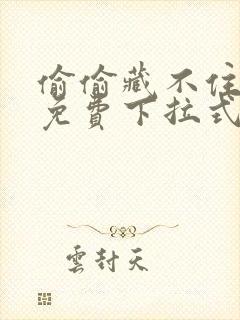 偷偷藏不住
免費下拉式
雲封天